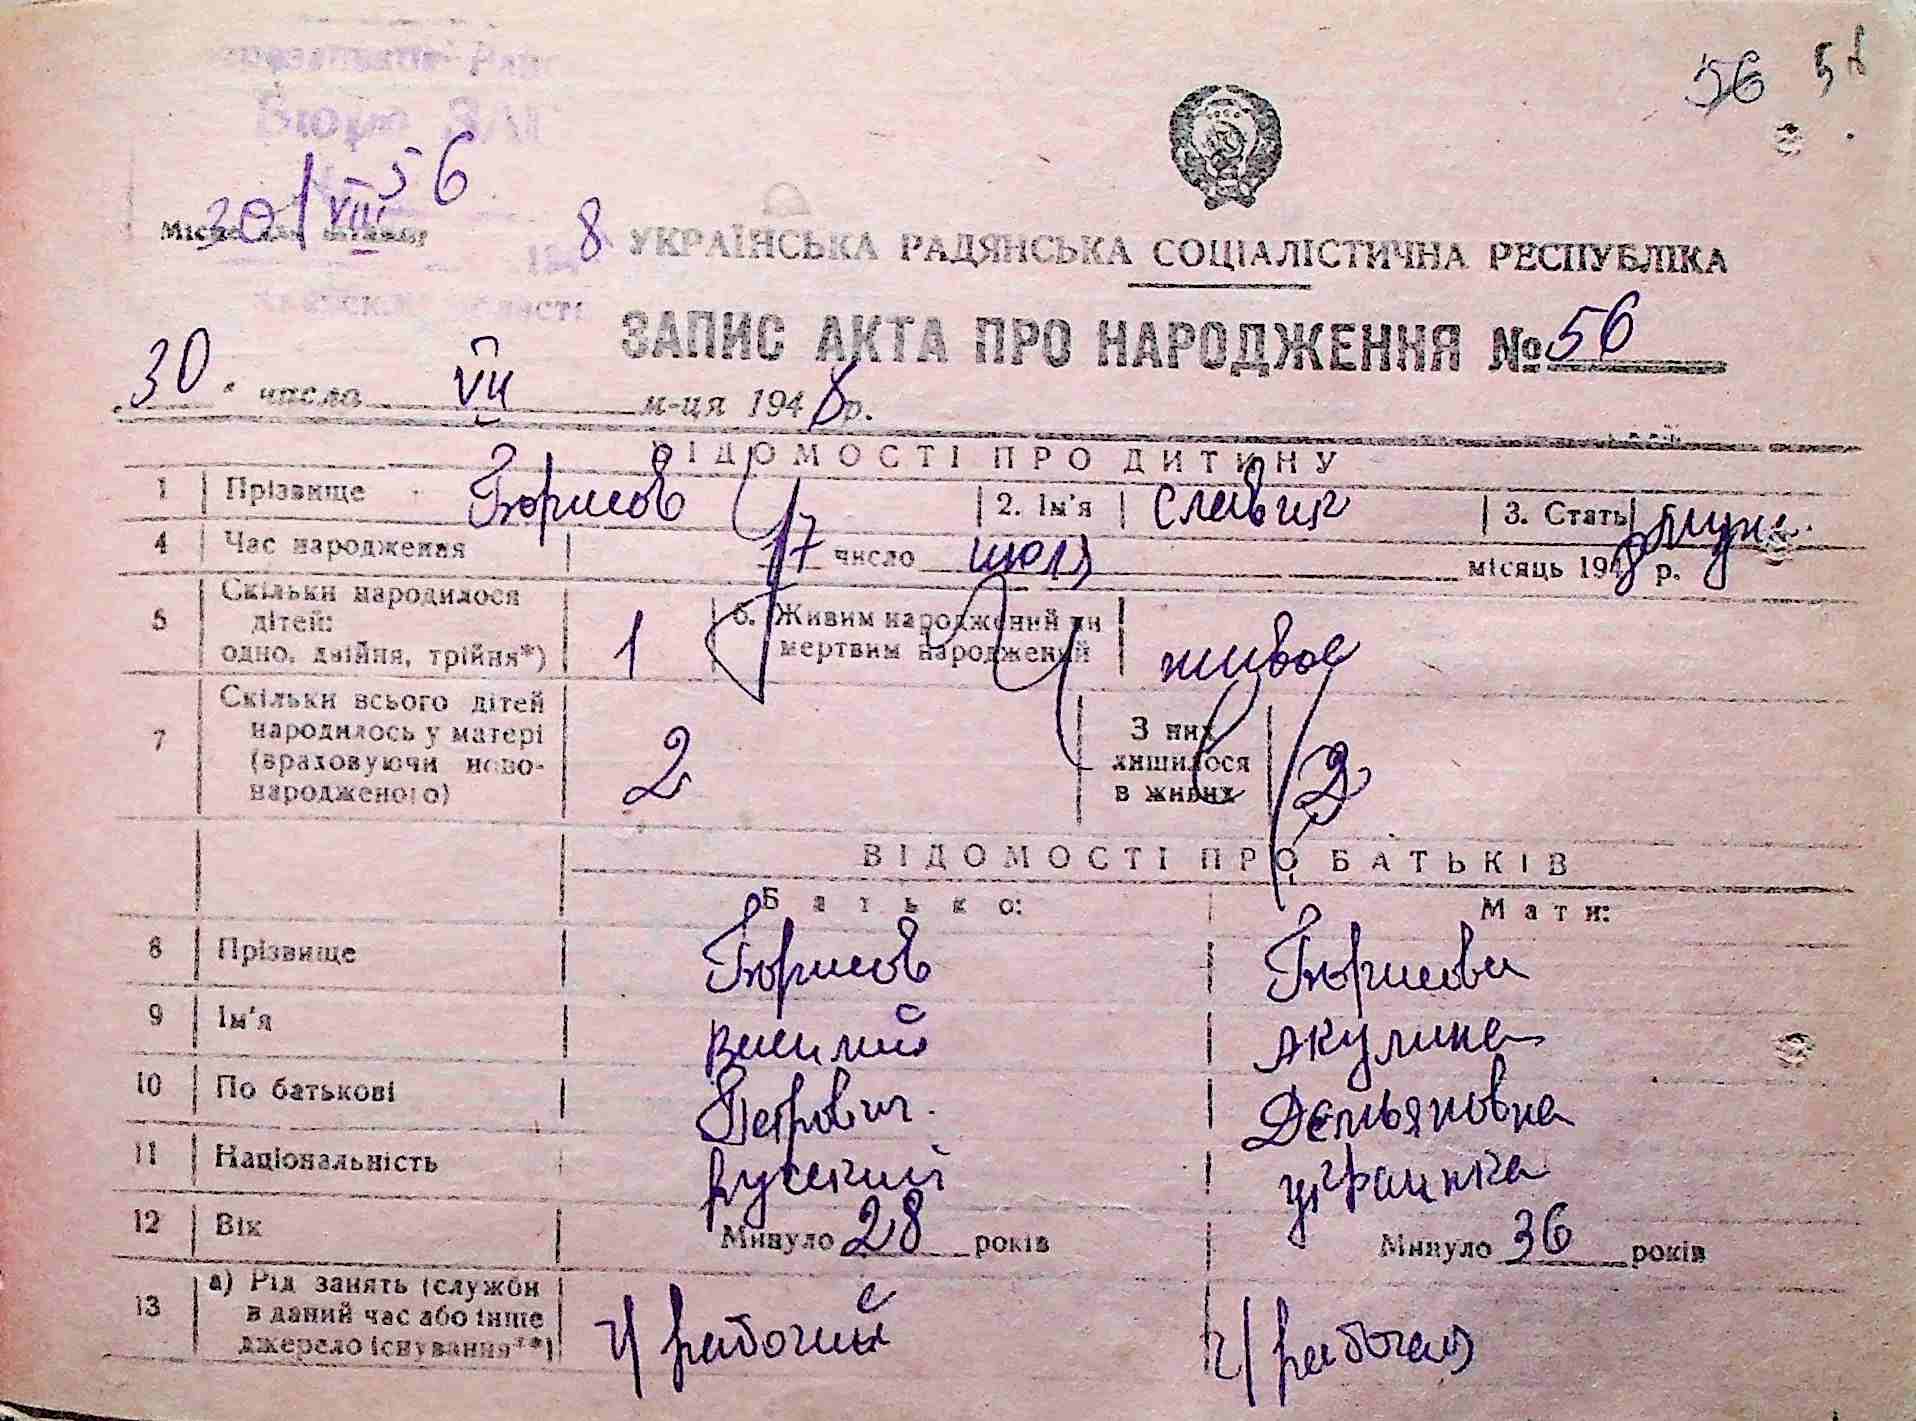 56 56
Бюро ЗАГС
56
30/VII
Місце для штампу
8
УКРАЇНСЬКА РАДЯНСЬКА СОЦІАЛІСТИЧНА РЕСПУБЛІКА
ЗАПИС АКТА ПРО НАРОДЖЕННЯ № 56
30 " числа VII м-ця 1948 р.
ВІДОМОСТІ ПРО ДИТИНУ
1 Прізвище Борисов 2. Ім'я Славик 3. Стать муж.
4 Час народження 17 число июля місяць 1948 р.
5 Скільки народилося дітей: одно, двійня, трійня*) 1 6. Живим народжений чи мертвим народжений живое
7 Скільки всього дітей народилось у матері (враховуючи ново-народженого) 2 З них лишилося в живих 2
ВІДОМОСТІ ПРО БАТЬКІВ
Батько: Мати:
8 Прізвище Борисов Борисова
9 Ім'я Василий Акулина
10 По батькові Петрович. Демьяновна
11 Національність русский украинка
12 Вік Минуло 28 років Минуло 36 років
13 а) Рід занять (служби в даний час або інше джерело існування**) ч/ рабочий ч/ рабочая